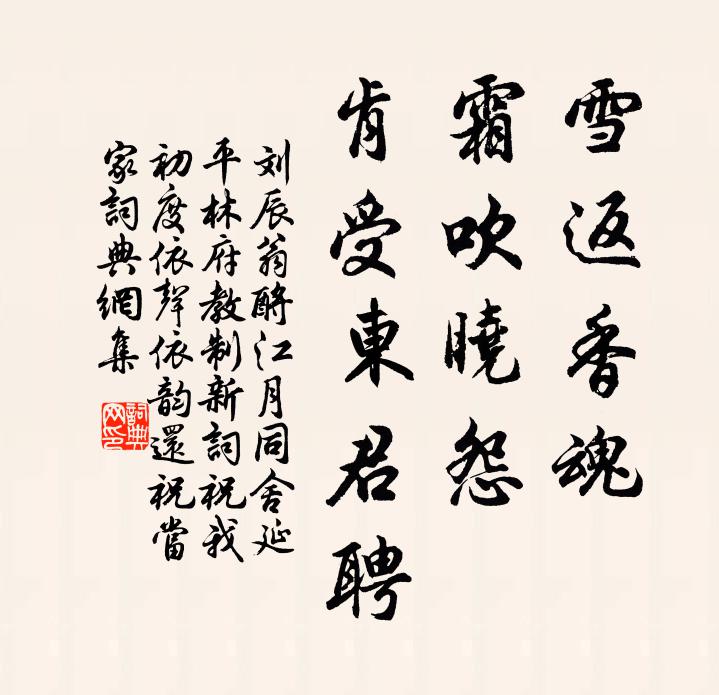 雪返香魂
霜吹曉怨
肯受東君聘
刘辰翁酹江月同舍延
平林府教制新詞祝我
初度依聲依韵還祝當
家詞典網集
詞典
网印